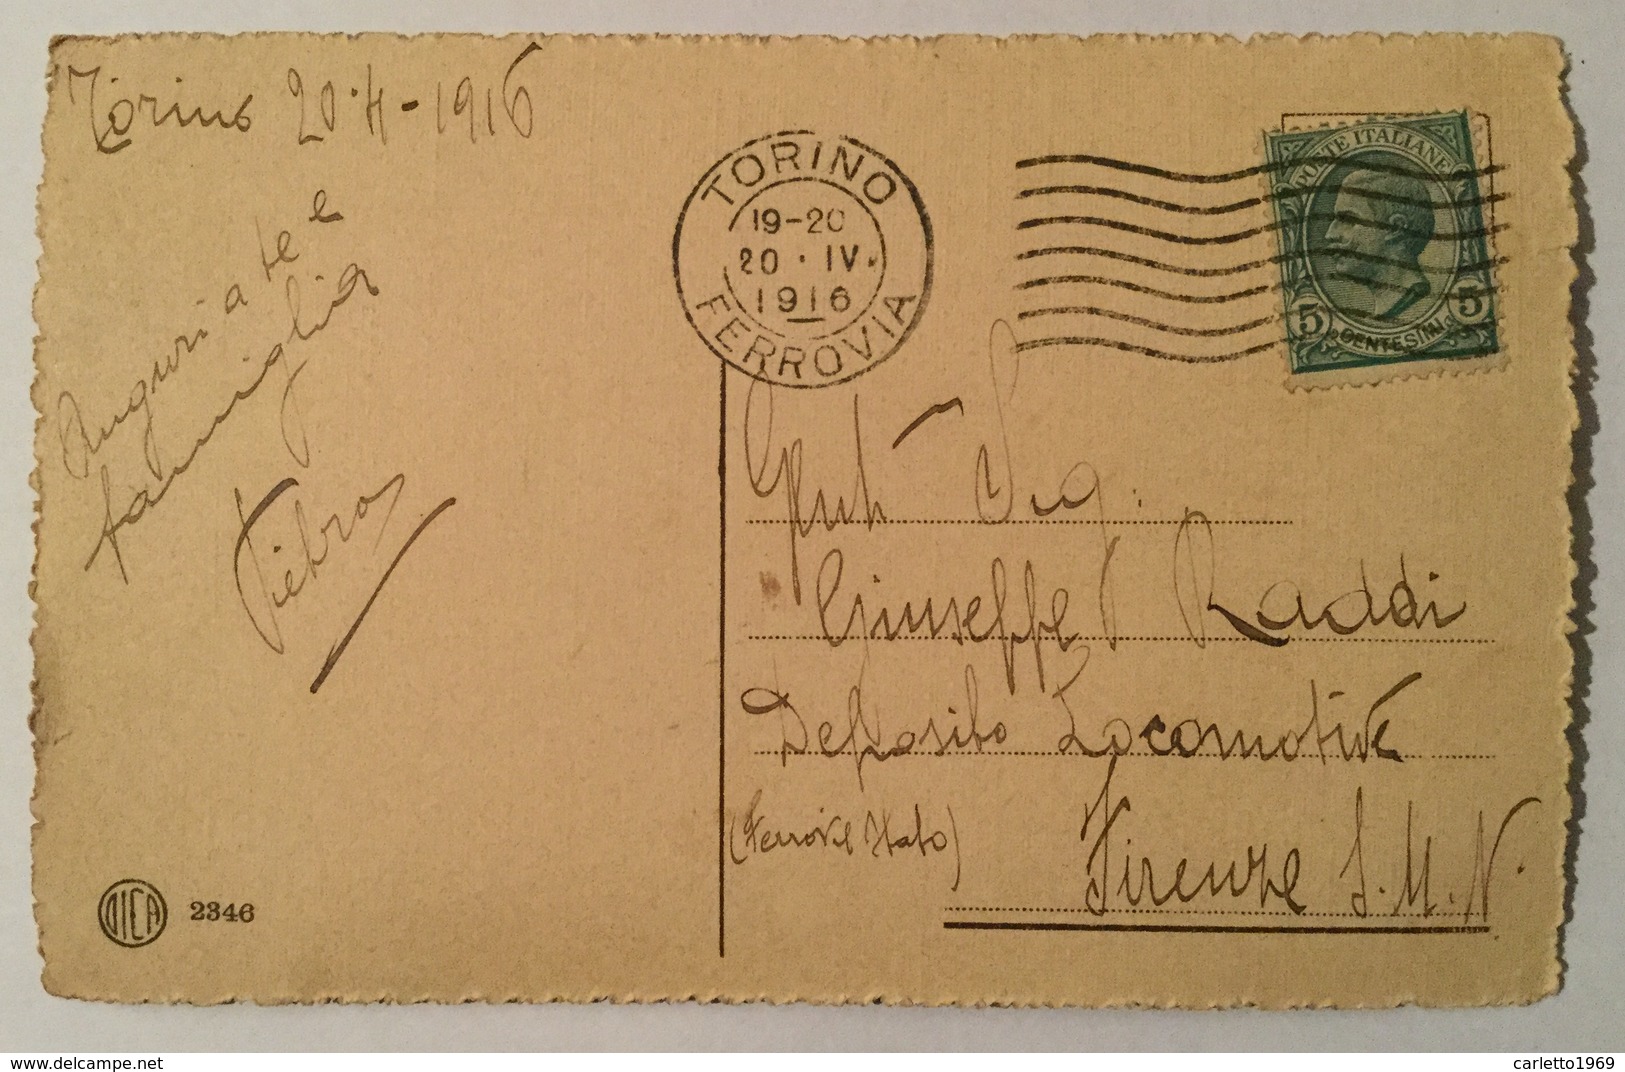 Torino 20·4-1916
Auguri a te e
famiglia
Pietro
TORINO
19-20
20·IV.
1916
FERROVIA
POSTE ITALIANE
5 CENTESIMI 5
Sig:
Giuseppe Raddi
Deposito Locomotive
(Ferrovie Stato)
Firenze S.M.N.
DICA 2346
www.delcampe.net
carletto1969